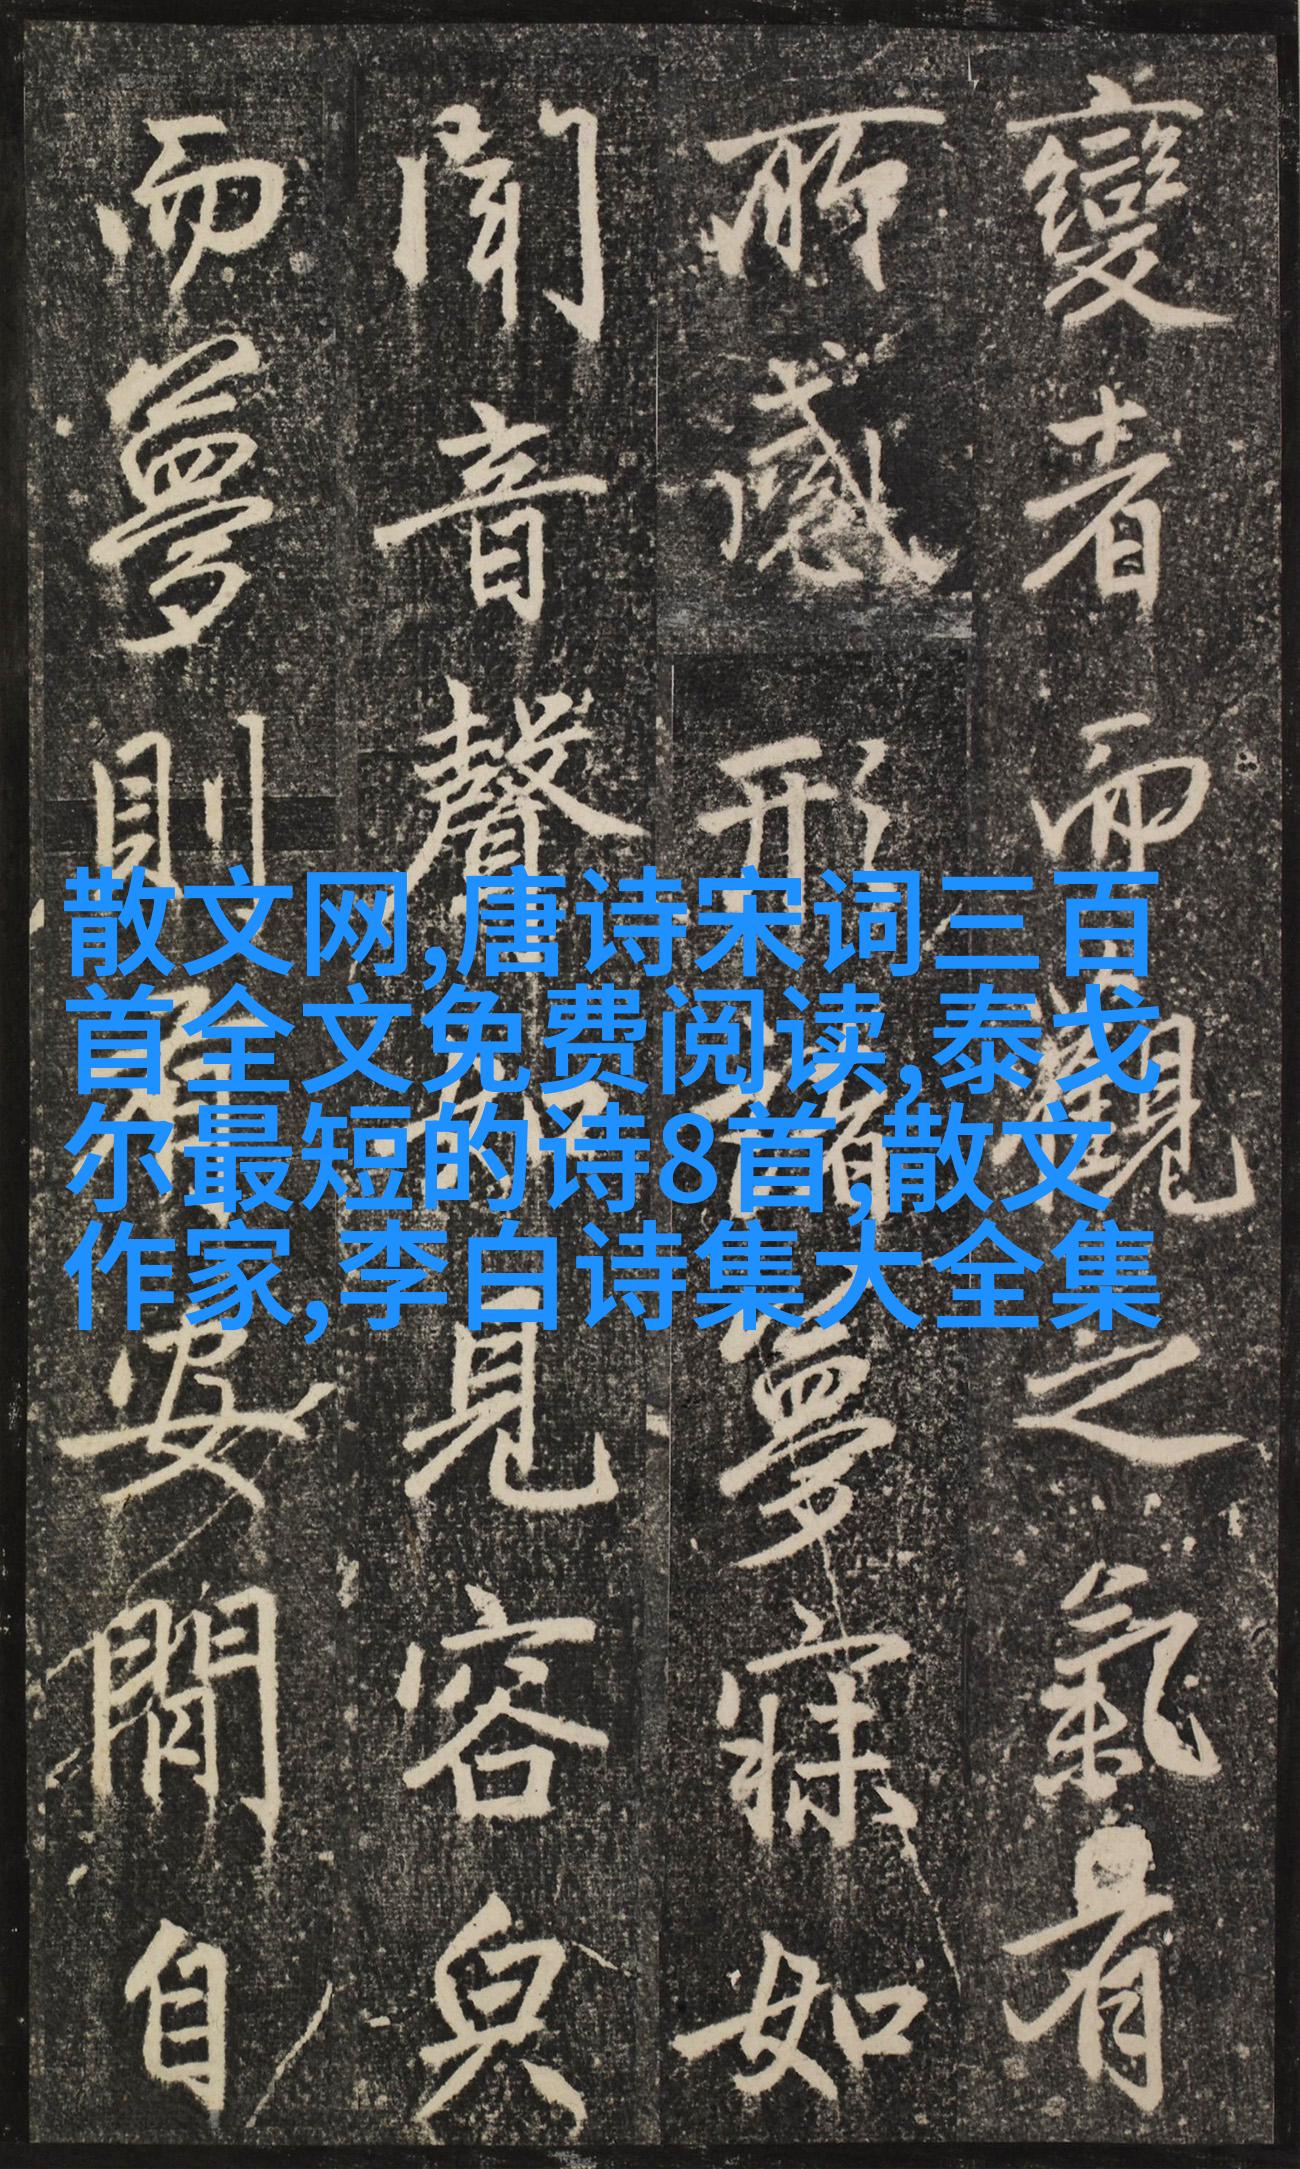 變者而觀之氣有
所感形諸夢寐如
聞音聲如見容皃
而夢則安閒自
散文网,唐诗宋词三百
首全文免费阅读,泰戈
尔最短的诗8首,散文
作家,李白诗集大全集